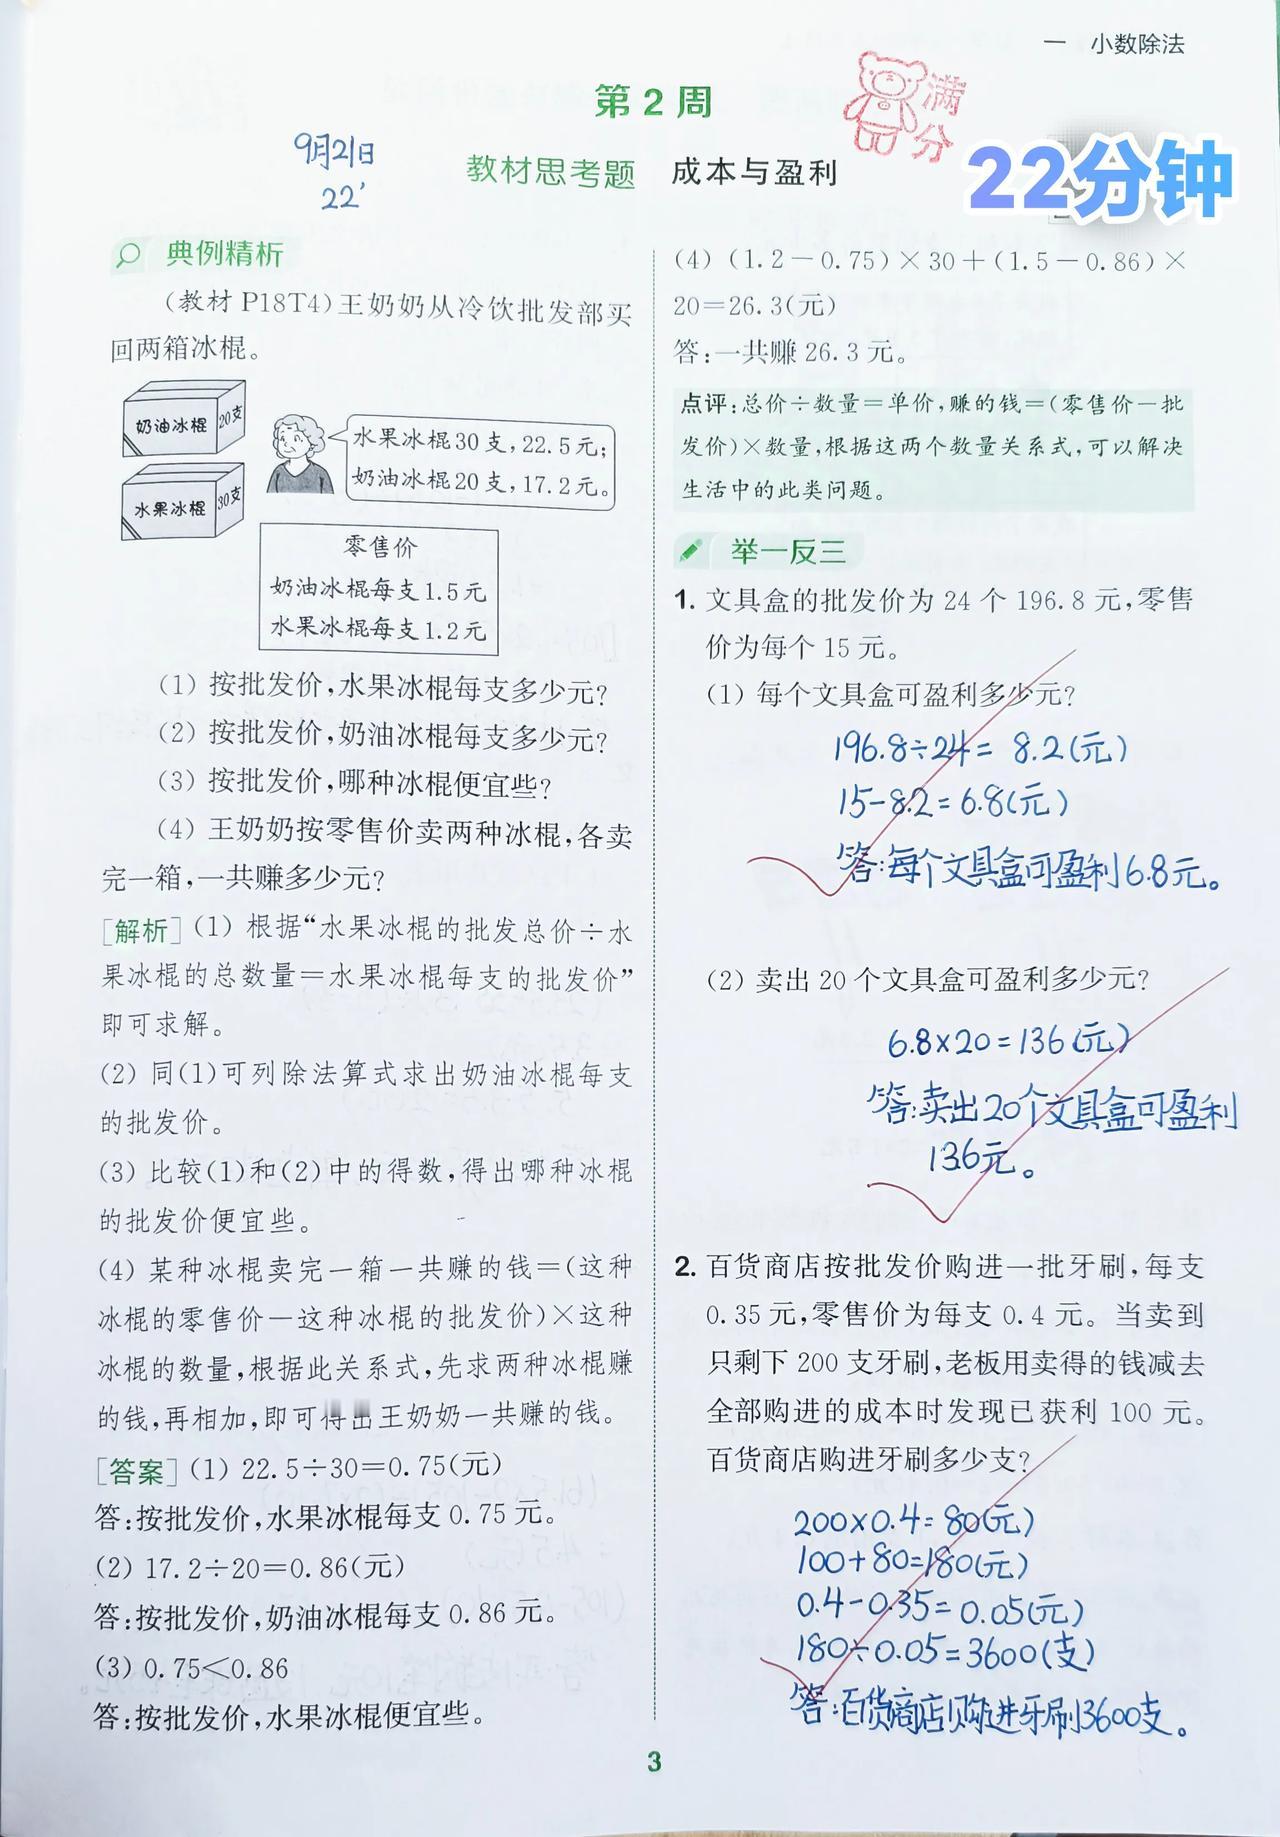 一 小数除法
第2周
满分
22分钟
9月21日
22′
教材思考题 成本与盈利
典例精析
(教材P18T4)王奶奶从冷饮批发部买
回两箱冰棍。
奶油冰棍 20支
水果冰棍 30支
水果冰棍30支,22.5元;
奶油冰棍20支,17.2元。
零售价
奶油冰棍每支1.5元
水果冰棍每支1.2元
(1) 按批发价,水果冰棍每支多少元?
(2) 按批发价,奶油冰棍每支多少元?
(3) 按批发价,哪种冰棍便宜些?
(4) 王奶奶按零售价卖两种冰棍,各卖
完一箱,一共赚多少元?
[解析](1) 根据“水果冰棍的批发总价÷水
果冰棍的总数量=水果冰棍每支的批发价”
即可求解。
(2) 同(1)可列除法算式求出奶油冰棍每支
的批发价。
(3) 比较(1)和(2)中的得数,得出哪种冰棍
的批发价便宜些。
(4) 某种冰棍卖完一箱一共赚的钱=(这种
冰棍的零售价-这种冰棍的批发价)×这种
冰棍的数量,根据此关系式,先求两种冰棍赚
的钱,再相加,即可得出王奶奶一共赚的钱。
[答案](1) 22.5÷30=0.75(元)
答:按批发价,水果冰棍每支0.75元。
(2) 17.2÷20=0.86(元)
答:按批发价,奶油冰棍每支0.86元。
(3) 0.75<0.86
答:按批发价,水果冰棍便宜些。
(4) (1.2-0.75)×30+(1.5-0.86)×
20=26.3(元)
答:一共赚26.3元。
点评:总价÷数量=单价,赚的钱=(零售价-批
发价)×数量,根据这两个数量关系式,可以解决
生活中的此类问题。
举一反三
1. 文具盒的批发价为24个196.8元,零售
价为每个15元。
(1) 每个文具盒可盈利多少元?
196.8÷24=8.2(元)
15-8.2=6.8(元)
答:每个文具盒可盈利6.8元。
(2) 卖出20个文具盒可盈利多少元?
6.8×20=136(元)
答:卖出20个文具盒可盈利
136元。
2. 百货商店按批发价购进一批牙刷,每支
0.35元,零售价为每支0.4元。当卖到
只剩下200支牙刷,老板用卖得的钱减去
全部购进的成本时发现已获利100元。
百货商店购进牙刷多少支?
200×0.4=80(元)
100+80=180(元)
0.4-0.35=0.05(元)
180÷0.05=3600(支)
答:百货商店购进牙刷3600支。
3